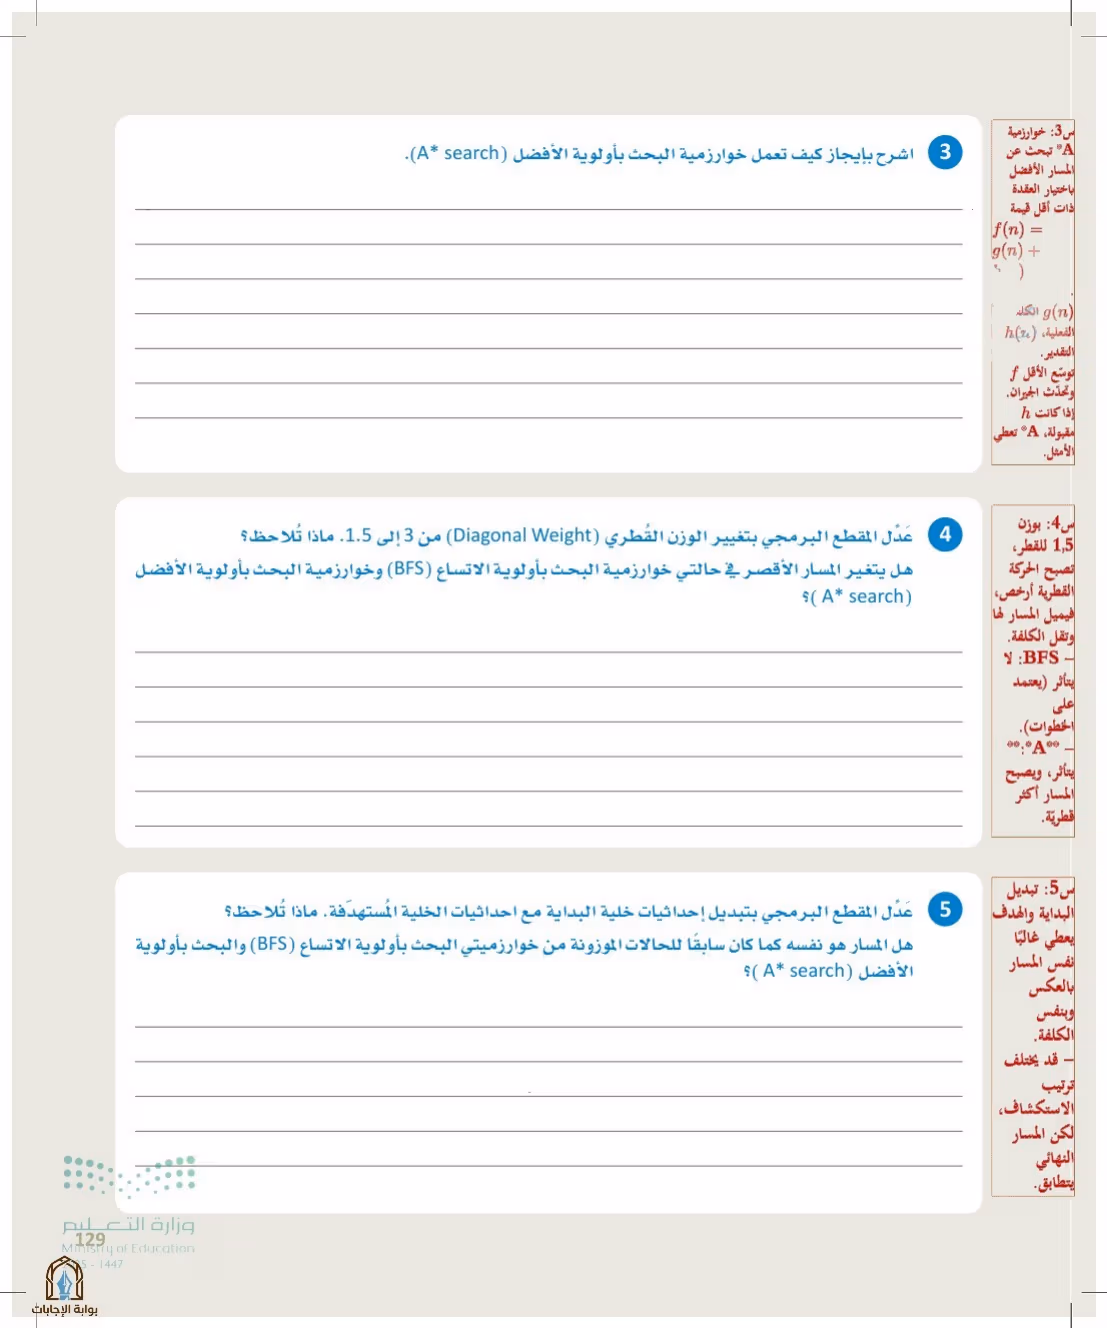 3 اشرح بإيجاز كيف تعمل خوارزمية البحث بأولوية الأفضل (A* search).
س3: خوارزمية
A* تبحث عن
المسار الأفضل
باختيار العقدة
ذات أقل قيمة
f(n) =
g(n) +
)
.
g(n)
الفعلية، h(n)
التقدير.
توسّع الأقل f
وتحدّث الجيران.
إذا كانت h
مقبولة، A* تعطي
الأمثل.
4 عَدِّل المقطع البرمجي بتغيير الوزن القُطري (Diagonal Weight) من 3 إلى 1.5. ماذا تُلاحظ؟
هل يتغير المسار الأقصر في حالتي خوارزمية البحث بأولوية الاتساع (BFS) وخوارزمية البحث بأولوية الأفضل
(A* search )؟
س4: بوزن
1,5 للقطر،
تصبح الحركة
القطرية أرخص،
فيميل المسار لها
وتقل الكلفة.
– BFS: لا
يتأثر (يعتمد
على
الخطوات).
– **A*:**
يتأثر، ويصبح
المسار أكثر
قطريّة.
5 عَدِّل المقطع البرمجي بتبديل إحداثيات خلية البداية مع احداثيات الخلية المُستهدَفة. ماذا تُلاحظ؟
هل المسار هو نفسه كما كان سابقًا للحالات الموزونة من خوارزميتي البحث بأولوية الاتساع (BFS) والبحث بأولوية
الأفضل (A* search )؟
س5: تبديل
البداية والهدف
يعطي غالبًا
نفس المسار
بالعكس
وبنفس
الكلفة.
– قد يختلف
ترتيب
الاستكشاف،
لكن المسار
النهائي
يتطابق.
وزارة التعليم
129
Ministry of Education
- 1447
بوابة الإجابات